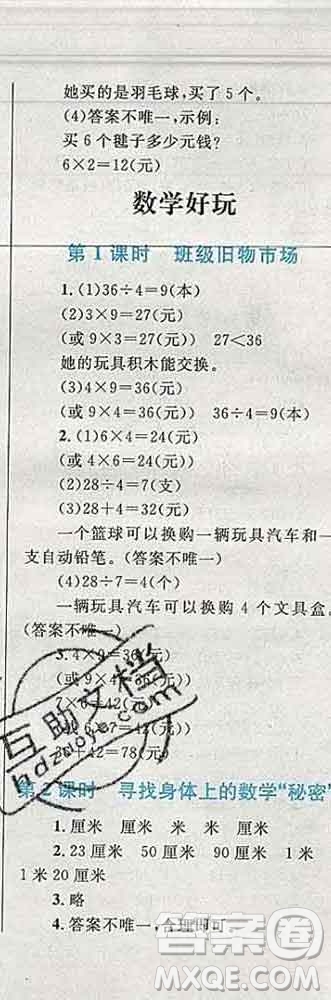 她买的是羽毛球，买了5个。
(4)答案不唯一，示例：
买6个毽子多少元钱？
6×2=12(元)
数学好玩
第1课时 班级旧物市场
1. (1)36÷4=9(本)
(2)3×9=27(元)
(或9×3=27(元)) 27<36
她的玩具积木能交换。
(3)4×9=36(元)
(或9×4=36(元)) 36÷9=4(个)
2. (1)6×4=24(元)
(或4×6=24(元))
(2)28÷4=7(支)
(3)28+4=32(元)
一个篮球可以换购一辆玩具汽车和一
支自动铅笔。(答案不唯一)
(4)28÷7=4(个)
一辆玩具汽车可以换购4个文具盒。
(答案不唯一)
3. 4×9=36(元)
(或9×4=36(元))
7×6=42(元)
(或6×7=42(元))
36+42=78(元)
第2课时 寻找身体上的数学“秘密”
1. 厘米 厘米 米 米 厘米
2. 23厘米 50厘米 90厘米 1米
1米20厘米
3. 略
4. 答案不唯一，合理即可
互助文档
hdzuoye.com
答案圈
MXQE.COM